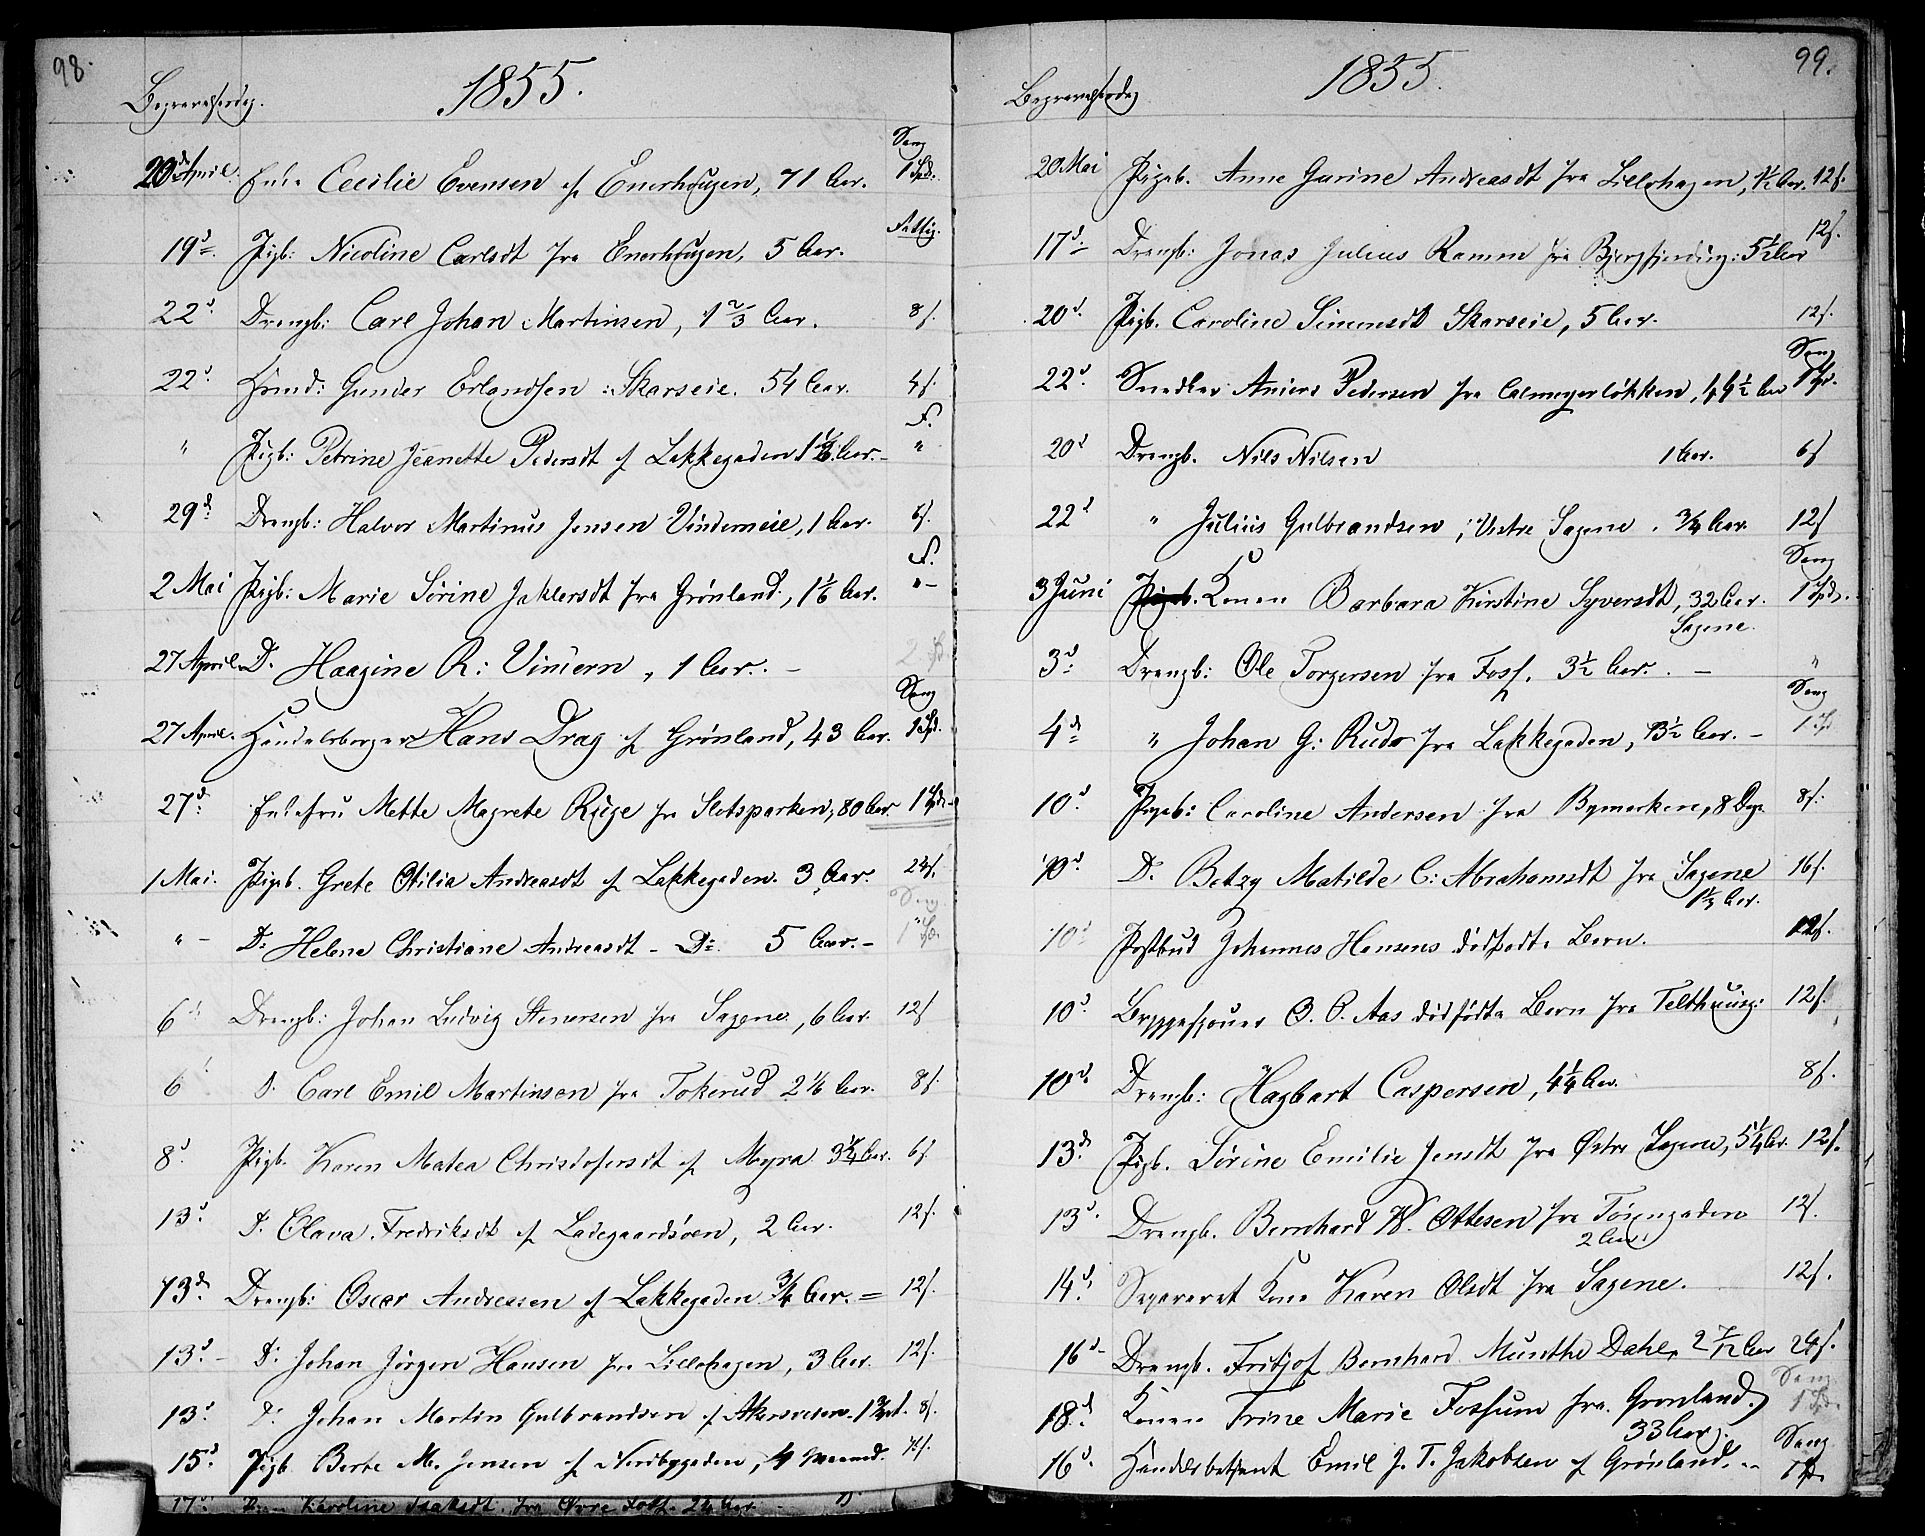 98.
1855.
Begravelsesdag.
Sang
20de April. Enke Cecilie Evensen af Enerhougen, 71 Aar. 1 Spd.
Fattig.
19d. Pigb: Nicoline Carlsdt fra Enerhougen, 5 Aar.
22d. Drengb: Carl Johan Martinsen, 1 2/3 Aar. 8 s.
22d. Huusmd: Gunder Erlandsen Skarseie. 54 Aar. 4 s.
F.
" Pigb: Petrine Jeanette Pedersdt af Lakkegaden 1 1/2 Aar. - "
29d. Drengb: Halvor Martinus Jensen Vindern eie, 1 Aar. 6 s.
F.
2 Mai Pigb: Marie Sörine Jaklersdt fra Grönland, 1 1/6 Aar. "-
27 April. Do Haagine R: Vindern, 1 Aar. -
Sang
27 April. Handelsborger Hans Drag af Grönland, 43 Aar. 1 Spd.
27d. Enkefru Mette Magrete Ruge fra Slotsparken, 80 Aar 1 Spd.
1 Mai. Pigeb. Grete Otilia Andreasdt af Lakkegaden. 3 Aar. 24 s.
Sang
" - Do: Helene Christiane Andreasdt - Do: 5 Aar. - 1 Spd.
6d Drengb: Johan Ludvig Stenersen fra Sagene, 6 Aar. 12 s
6 D. Carl Emil Martinsen fra Tokerud 2 1/6 Aar. 8 s.
8d. Pigb. Karen Matea Christofersdt af Myra 3 1/4 Aar. 6 s
13d. D. Olava Fredriksdt af Ladegaardsöen, 2 Aar. 12 s.
13d. Drengb: Oscar Andreasen af Lakkegaden 3/4 Aar. = 12 s.
13d. - D: Johan Jörgen Hansen fra Lillohagen, 3 Aar. 12 s.
13d D: Johan Martin Gulbrandsen af Akersveien 8 s.
15d. Pigb. Berte M. Jensen af Nordbygaden, 4 Maaned.
17d. Karoline Isaksdt. fra Övre Foss. 2 1/4 Aar. -
99.
1855.
Begravelsesdag
20 Mai Pigeb. Anne Gurine Andreasdt fra Lillohagen, 1 1/2 Aar. 12 s.
17d - Drengb: Jonas Julius Ramm fra Bjergfjerding: 5 1/2 Aar 12 s.
20d. Pigb. Caroline Simensdt Skarseie, 5 Aar. 12 s.
Sang
22d. Snedker Anders Pedersen fra Calmeyerlökken, 49 1/2 Aar 1 Spd.
20d Drengb. Nils Nilsen 1 Aar. 6 s
22d " Julius Gulbrandsen, Vestre Sagene. 3/4 Aar. 12 s
Sang
3 Juni Pigeb. Konen Barbara Kirstine Syversdt, 32 Aar. 1 Spd.
Sagene.
3d. Drengb: Ole Torgersen fra Foss, 3 1/2 Aar. - "
Sang
4d " Johan G: Rudo fra Lakkegaden, 13 1/2 Aar. - 1 Spd
10d. Pigeb: Caroline Andersen fra Bymarken, 8 Dage 8 s.
10d. D. Betzy Matilde C: Abrahamsdt fra Sagene 16 s.
1 1/3 Aar.
10d Postbud Johannes Hansens dödfödte Barn. 12 s.
10d. Bryggesjouer O. O. Aas dödfödte Barn fra Telthuusg: 12 s.
10d. Drengb: Hagbart Caspersen, 4 1/4 Aar. 8 s.
13d. Pigb. Sörine Emilie Jensdt fra Östre Sagene, 5 1/4 Aar. 12 s.
13d. Drengb. Bernhard W. Ottesen fra Töiengaden 12 s.
2 Aar.
14d. Separeret Kone Karen Olsdt fra Sagene. 12 s.
16d - Drengb. Fritjof Bernhard Munthe Dahl, 2 7/12 Aar 24 s.
Sang
18d Konen Trine Marie Fossum fra Grønland, 1 Spd.
33 Aar.
Sang
16d. Handelsbetjent Emil J. T. Jakobsen af Grönland. - 1 Spd.